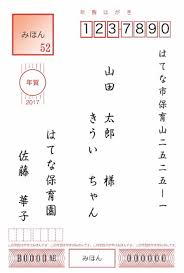 年賀はがき
みほん
52
1237890
年賀
2017
はてな市保育山二五二五ー一
山田 太郎 様
きうい ちゃん
はてな保育園
佐藤 華子
B0000組
みほん
000000